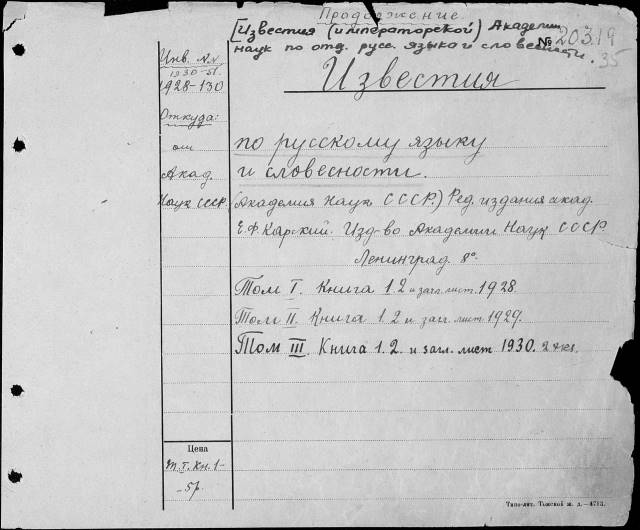 Продолжение
[Известия (императорской) Академии
наук по отд. русс. языка и словесности.
№ 20319
35
Известия
Инв. №№
1930-51.
1928-130
Откуда:
от
Акад.
Наук СССР.
по русскому языку
и словесности.
(Академия Наук СССР.) Ред. издания акад.
Е.Ф. Карский. Изд-во Академии Наук СССР.
Ленинград. 8°.
Том I. Книга 1.2 и загл. лист. 1928.
Том II. Книга 1.2 и загл. лист. 1929.
Том III. Книга 1.2. и загл. лист 1930. 2 экз.
Цена
Т.I. Кн. 1-
-5р.
Типо-лит. Томской ж. д.—4713.